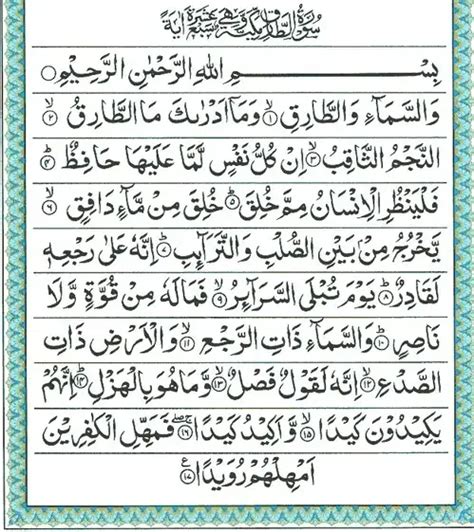 سُوْرَةُ الطَّارِقِ مَكِّيَّةٌ وَّهِيَ سَبْعَ عَشَرَةَ اٰيَةً
بِسْمِ اللهِ الرَّحْمٰنِ الرَّحِيْمِ
وَالسَّمَآءِ وَالطَّارِقِ ۙ﴿۱﴾ وَمَاۤ اَدْرٰىكَ مَا الطَّارِقُ ۙ﴿۲﴾
النَّجْمُ الثَّاقِبُ ۙ﴿۳﴾ اِنْ كُلُّ نَفْسٍ لَّمَّا عَلَيْهَا حَافِظٌ ؕ﴿۴﴾
فَلْيَنْظُرِ الْاِنْسَانُ مِمَّ خُلِقَ ؕ﴿۵﴾ خُلِقَ مِنْ مَّآءٍ دَافِقٍ ۙ﴿۶﴾
يَّخْرُجُ مِنْۢ بَيْنِ الصُّلْبِ وَالتَّرَآئِبِ ؕ﴿۷﴾ اِنَّهٗ عَلٰى رَجْعِهٖ
لَقَادِرٌ ؕ﴿۸﴾ يَوْمَ تُبْلَى السَّرَآئِرُ ۙ﴿۹﴾ فَمَا لَهٗ مِنْ قُوَّةٍ وَّلَا
نَاصِرٍ ؕ﴿۱۰﴾ وَالسَّمَآءِ ذَاتِ الرَّجْعِ ۙ﴿۱۱﴾ وَالْاَرْضِ ذَاتِ
الصَّدْعِ ۙ﴿۱۲﴾ اِنَّهٗ لَقَوْلٌ فَصْلٌ ۙ﴿۱۳﴾ وَّمَا هُوَ بِالْهَزْلِ ؕ﴿۱۴﴾ اِنَّهُمْ
يَكِيْدُوْنَ كَيْدًا ۙ﴿۱۵﴾ وَّاَكِيْدُ كَيْدًا ۚۖ﴿۱۶﴾ فَمَهِّلِ الْكٰفِرِيْنَ
اَمْهِلْهُمْ رُوَيْدًا ﴿۱۷﴾